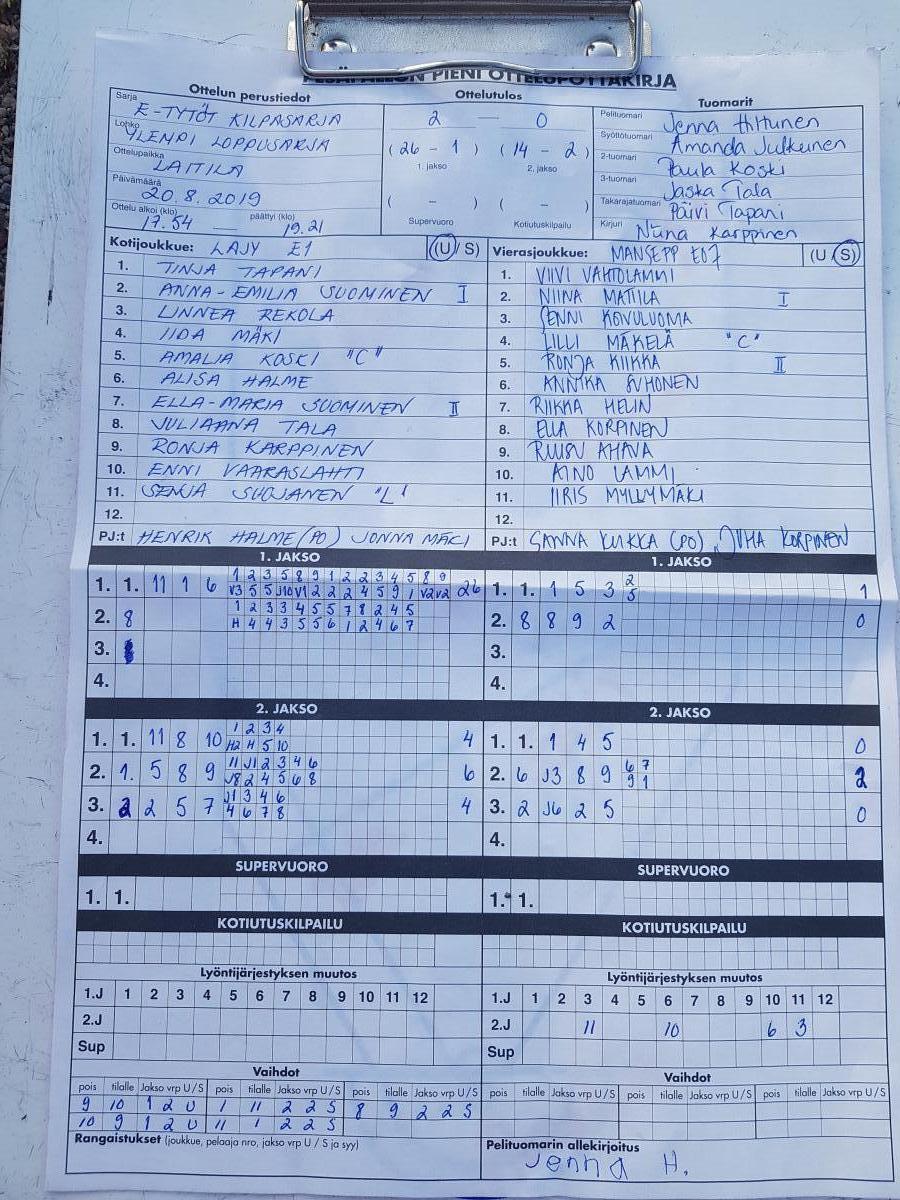 PIENI OTTELUPÖYTÄKIRJA
Ottelun perustiedot
Ottelutulos
Tuomarit
Sarja E-TYTÖT KILPASARJA
Lohko YLEMPI LOPPUSARJA
Ottelupaikka LAITILA
Päivämäärä 20.8.2019
Ottelu alkoi (klo) 17.54 — päättyi (klo) 19.21
2 — 0
(26 - 1) (14 - 2)
1. jakso 2. jakso
( - ) ( - )
Supervuoro Kotiutuskilpailu
Pelituomari Jenna Hiltunen
Syöttötuomari Amanda Julkunen
2-tuomari Paula Koski
3-tuomari Jaska Tala
Takarajatuomari Päivi Tapani
Kirjuri Niina Karppinen
Kotijoukkue: LAJY E1 (U/S)
1. TINJA TAPANI
2. ANNA-EMILIA SUOMINEN I
3. LINNEA REKOLA
4. IIDA MÄKI
5. AMALIA KOSKI "C"
6. ALISA HALME
7. ELLA-MARIA SUOMINEN II
8. JULIAANA TALA
9. RONJA KARPPINEN
10. ENNI VAARASLAHTI
11. SENJA SUOJANEN "L"
12.
PJ:t HENRIK HALME (PO) JONNA MÄKI
Vierasjoukkue: MANSEPP E07 (U/S)
1. VIIVI VAHTOLAMMI
2. NIINA MATTILA I
3. JENNI KOIVULUOMA
4. LILLI MÄKELÄ "C"
5. RONJA KIIKKA II
6. ANNIKA SUHONEN
7. RIIKKA HELIN
8. ELLA KORPINEN
9. RUUSU AHAVA
10. AINO LAMMI
11. IIRIS MYLLYMÄKI
12.
PJ:t SANNA KUKKA (PO), JUHA KORPINEN
1. JAKSO
1. 1. 11 1 6 1 2 3 5 8 9 1 2 2 3 4 5 8 9 26
V3 5 5 J10 V1 2 2 2 4 5 9 1 V2 V2
2. 8 1 2 3 3 4 5 5 7 8 2 4 5
H 4 4 3 5 5 6 1 2 4 6 7
3.
4.
1. JAKSO
1. 1. 1 5 3 2 1
5
2. 8 8 9 2 0
3.
4.
2. JAKSO
1. 1. 11 8 10 1 2 3 4 4
H2 H 5 10
2. 1. 5 8 9 11 J1 2 3 4 6 6
J8 2 4 5 6 8
3. 2 2 5 7 J1 3 4 6 4
4 6 7 8
4.
2. JAKSO
1. 1. 1 4 5 0
2. 6 J3 8 9 6 7 2
9 1
3. 2 J6 2 5 0
4.
SUPERVUORO
1. 1.
SUPERVUORO
1. 1.
KOTIUTUSKILPAILU
KOTIUTUSKILPAILU
Lyöntijärjestyksen muutos
1.J 1 2 3 4 5 6 7 8 9 10 11 12
2.J
Sup
Lyöntijärjestyksen muutos
1.J 1 2 3 4 5 6 7 8 9 10 11 12
2.J 11 10 6 3
Sup
Vaihdot
pois tilalle Jakso vrp U/S pois tilalle Jakso vrp U/S pois tilalle Jakso vrp U/S
9 10 1 2 U 1 11 2 2 S 8 9 2 2 S
10 9 1 2 U 11 1 2 2 S
Vaihdot
pois tilalle Jakso vrp U/S pois tilalle Jakso vrp U/S pois tilalle Jakso vrp U/S
Rangaistukset (joukkue, pelaaja nro, jakso vrp U / S ja syy)
Pelituomarin allekirjoitus
Jenna H.